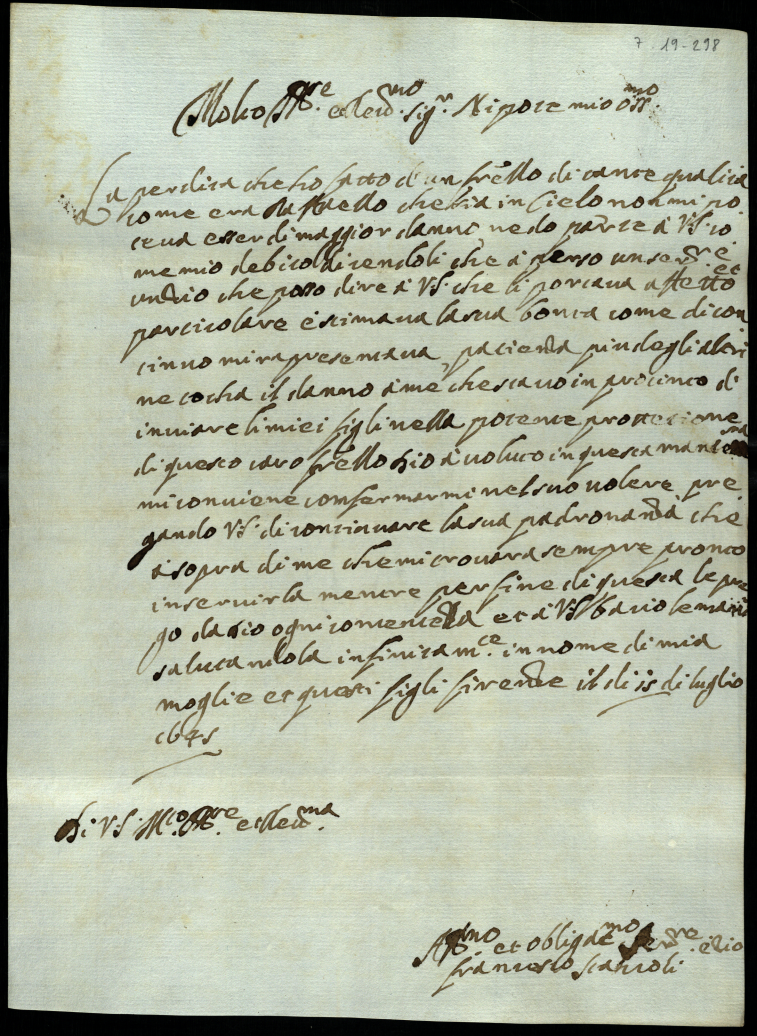 7 19-298
Molto Ill.re et Rev.mo Sig.r Nipote mio oss.mo
La perdita che ho fatto d'un frello di tante qualita
come era Raffaello che sia in Cielo non mi po
teva esser di maggior danno ne do parte à V.S. co
me mio debito dicendoli che à perso un ser.re e
un Zio che posso dire à V.S. che li portava affetto et
particolare e stimava la sua bonta come di con
tinuo mi rapresentava, pacienza piu degli altri
ne tocha il danno à me che stavo in procinto di
inviare li miei figli nella potente protettione
di questo caro frello Dio à voluto in questa maniera
mi conviene confermarmi nel suo volere pre
gando V.S. di continuare la sua padronanza che
à sopra di me che mi trovara sempre pronto
in servirla mentre per fine di questa le pre
go da Dio ogni contenteza et à V.S. bacio le mani
salutandola infinitam.ce in nome di mia
moglie et questi figli firenze il di 15 di luglio
1645
Di V.S. M.to Ill.re et Rev.ma
Aff.mo et obligat.mo Ser.re e Zio
francesco